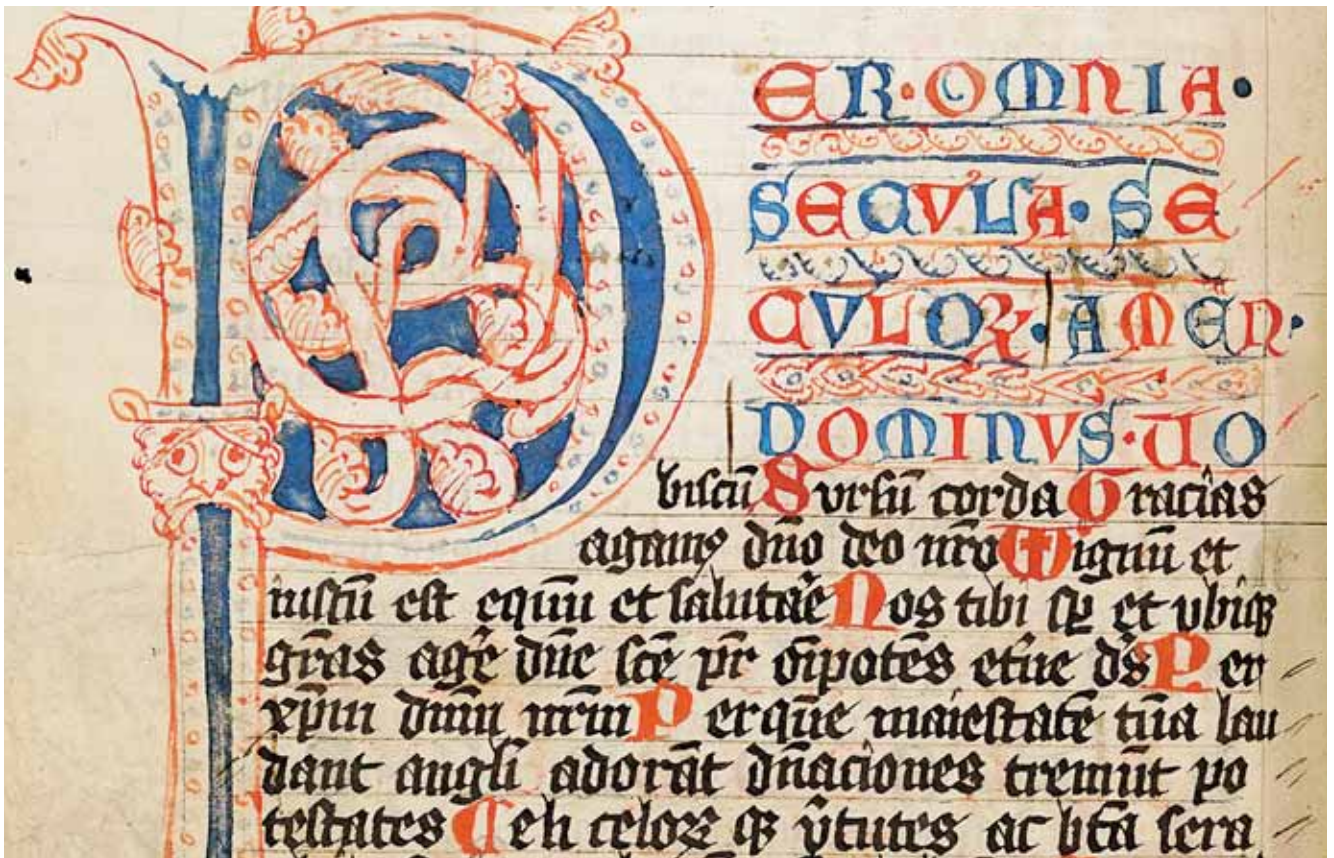 PER·OMNIA·
SECVLA·SE
CVLOꝜ·AMEN·
DOMINVS·UO
biſcū Surſū corda Gracias
agamꝰ dn̄o deo nr̄o Dignū et
iuſtū eſt equū et ſalutar̄e Nos tibi ſꝑ et vbiqꝫ
gr̄as ager̄e dn̄e ſcē pr̄ oīpotēs et̄ne ds̄ Per
xp̄m dn̄m nr̄m Per quē maieſtatē tuā lau
dant angli̅ adorāt dn̄aciones tremūt po
teſtates Celi celoꝝ qꝫ v̄tutes ac bt̄a ſera